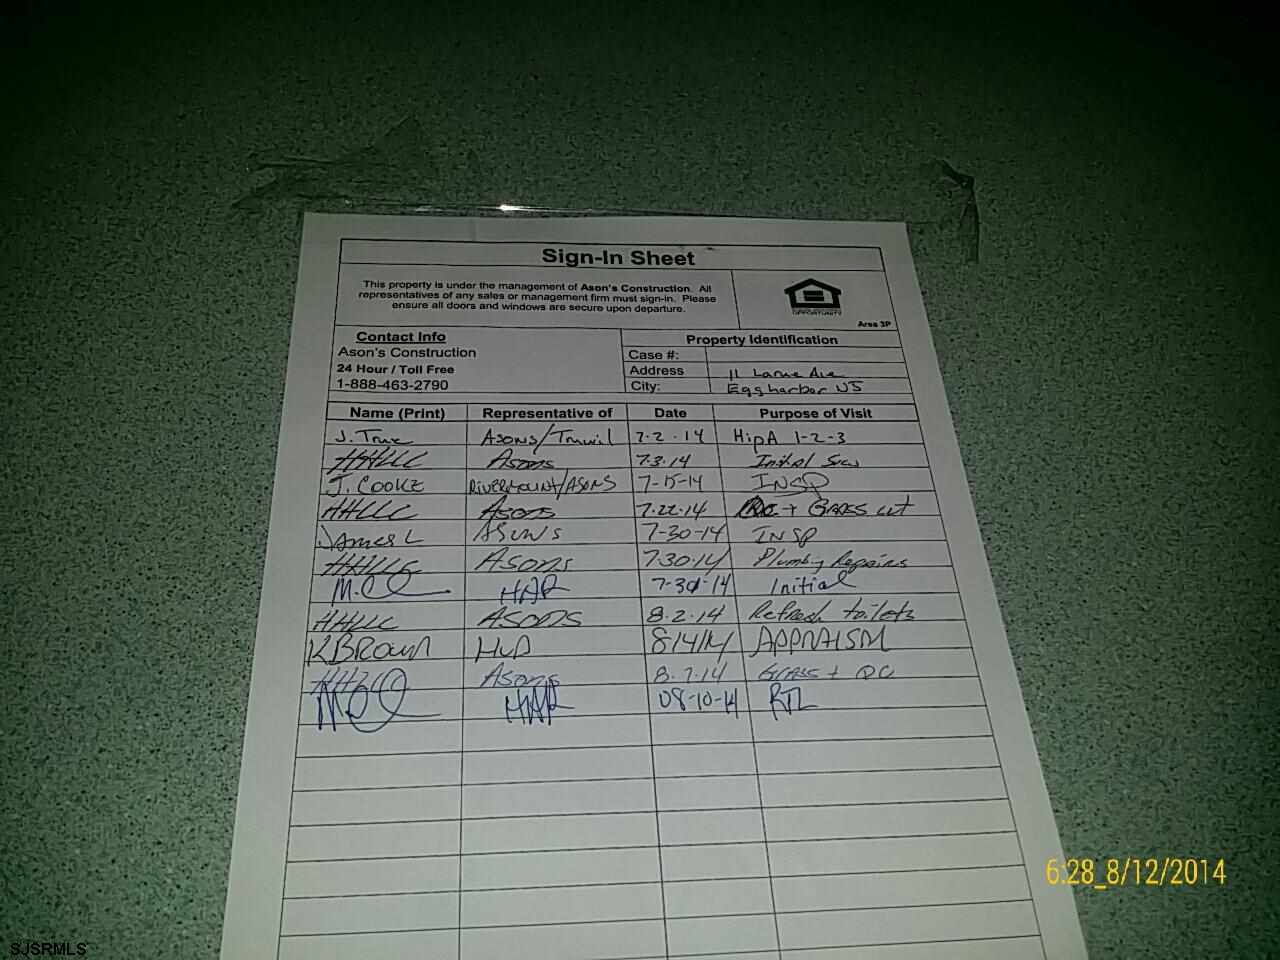 Sign-In Sheet
This property is under the management of Ason's Construction. All
representatives of any sales or management firm must sign-in. Please
ensure all doors and windows are secure upon departure.
OPPORTUNITY
Area 3P
Contact Info
Ason's Construction
24 Hour / Toll Free
1-888-463-2790
Property Identification
Case #:
Address 11 Larue Ave
City: Eggharbor NJ
Name (Print) Representative of Date Purpose of Visit
J. True Asons/Truwil 7-2-14 HipA 1-2-3
HHLLC Asons 7.3.14 Initial
J. COOKE RIVERMOUNT/ASONS 7-15-14 INSP
HHLLC Asons 7.22.14 + GRASS cut
JAMES L ASONS 7-30-14 INSP
HHLLC Asons 7.30.14 Plumbing Repairs
HAR 7-30-14 Initial
HHLLC ASONS 8.2.14 Refresh toilets
K BROWN HUD 8/4/14 APPRAISM
Asons 8.7.14 GRASS + QC
HAR 08-10-14
6:28_8/12/2014
SJSRMLS